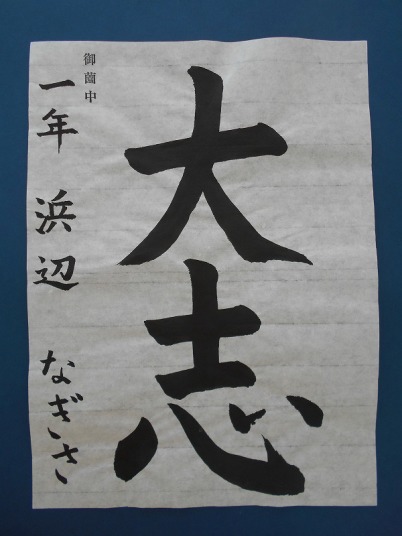 大志
御薗中
一年 浜辺 なぎさ